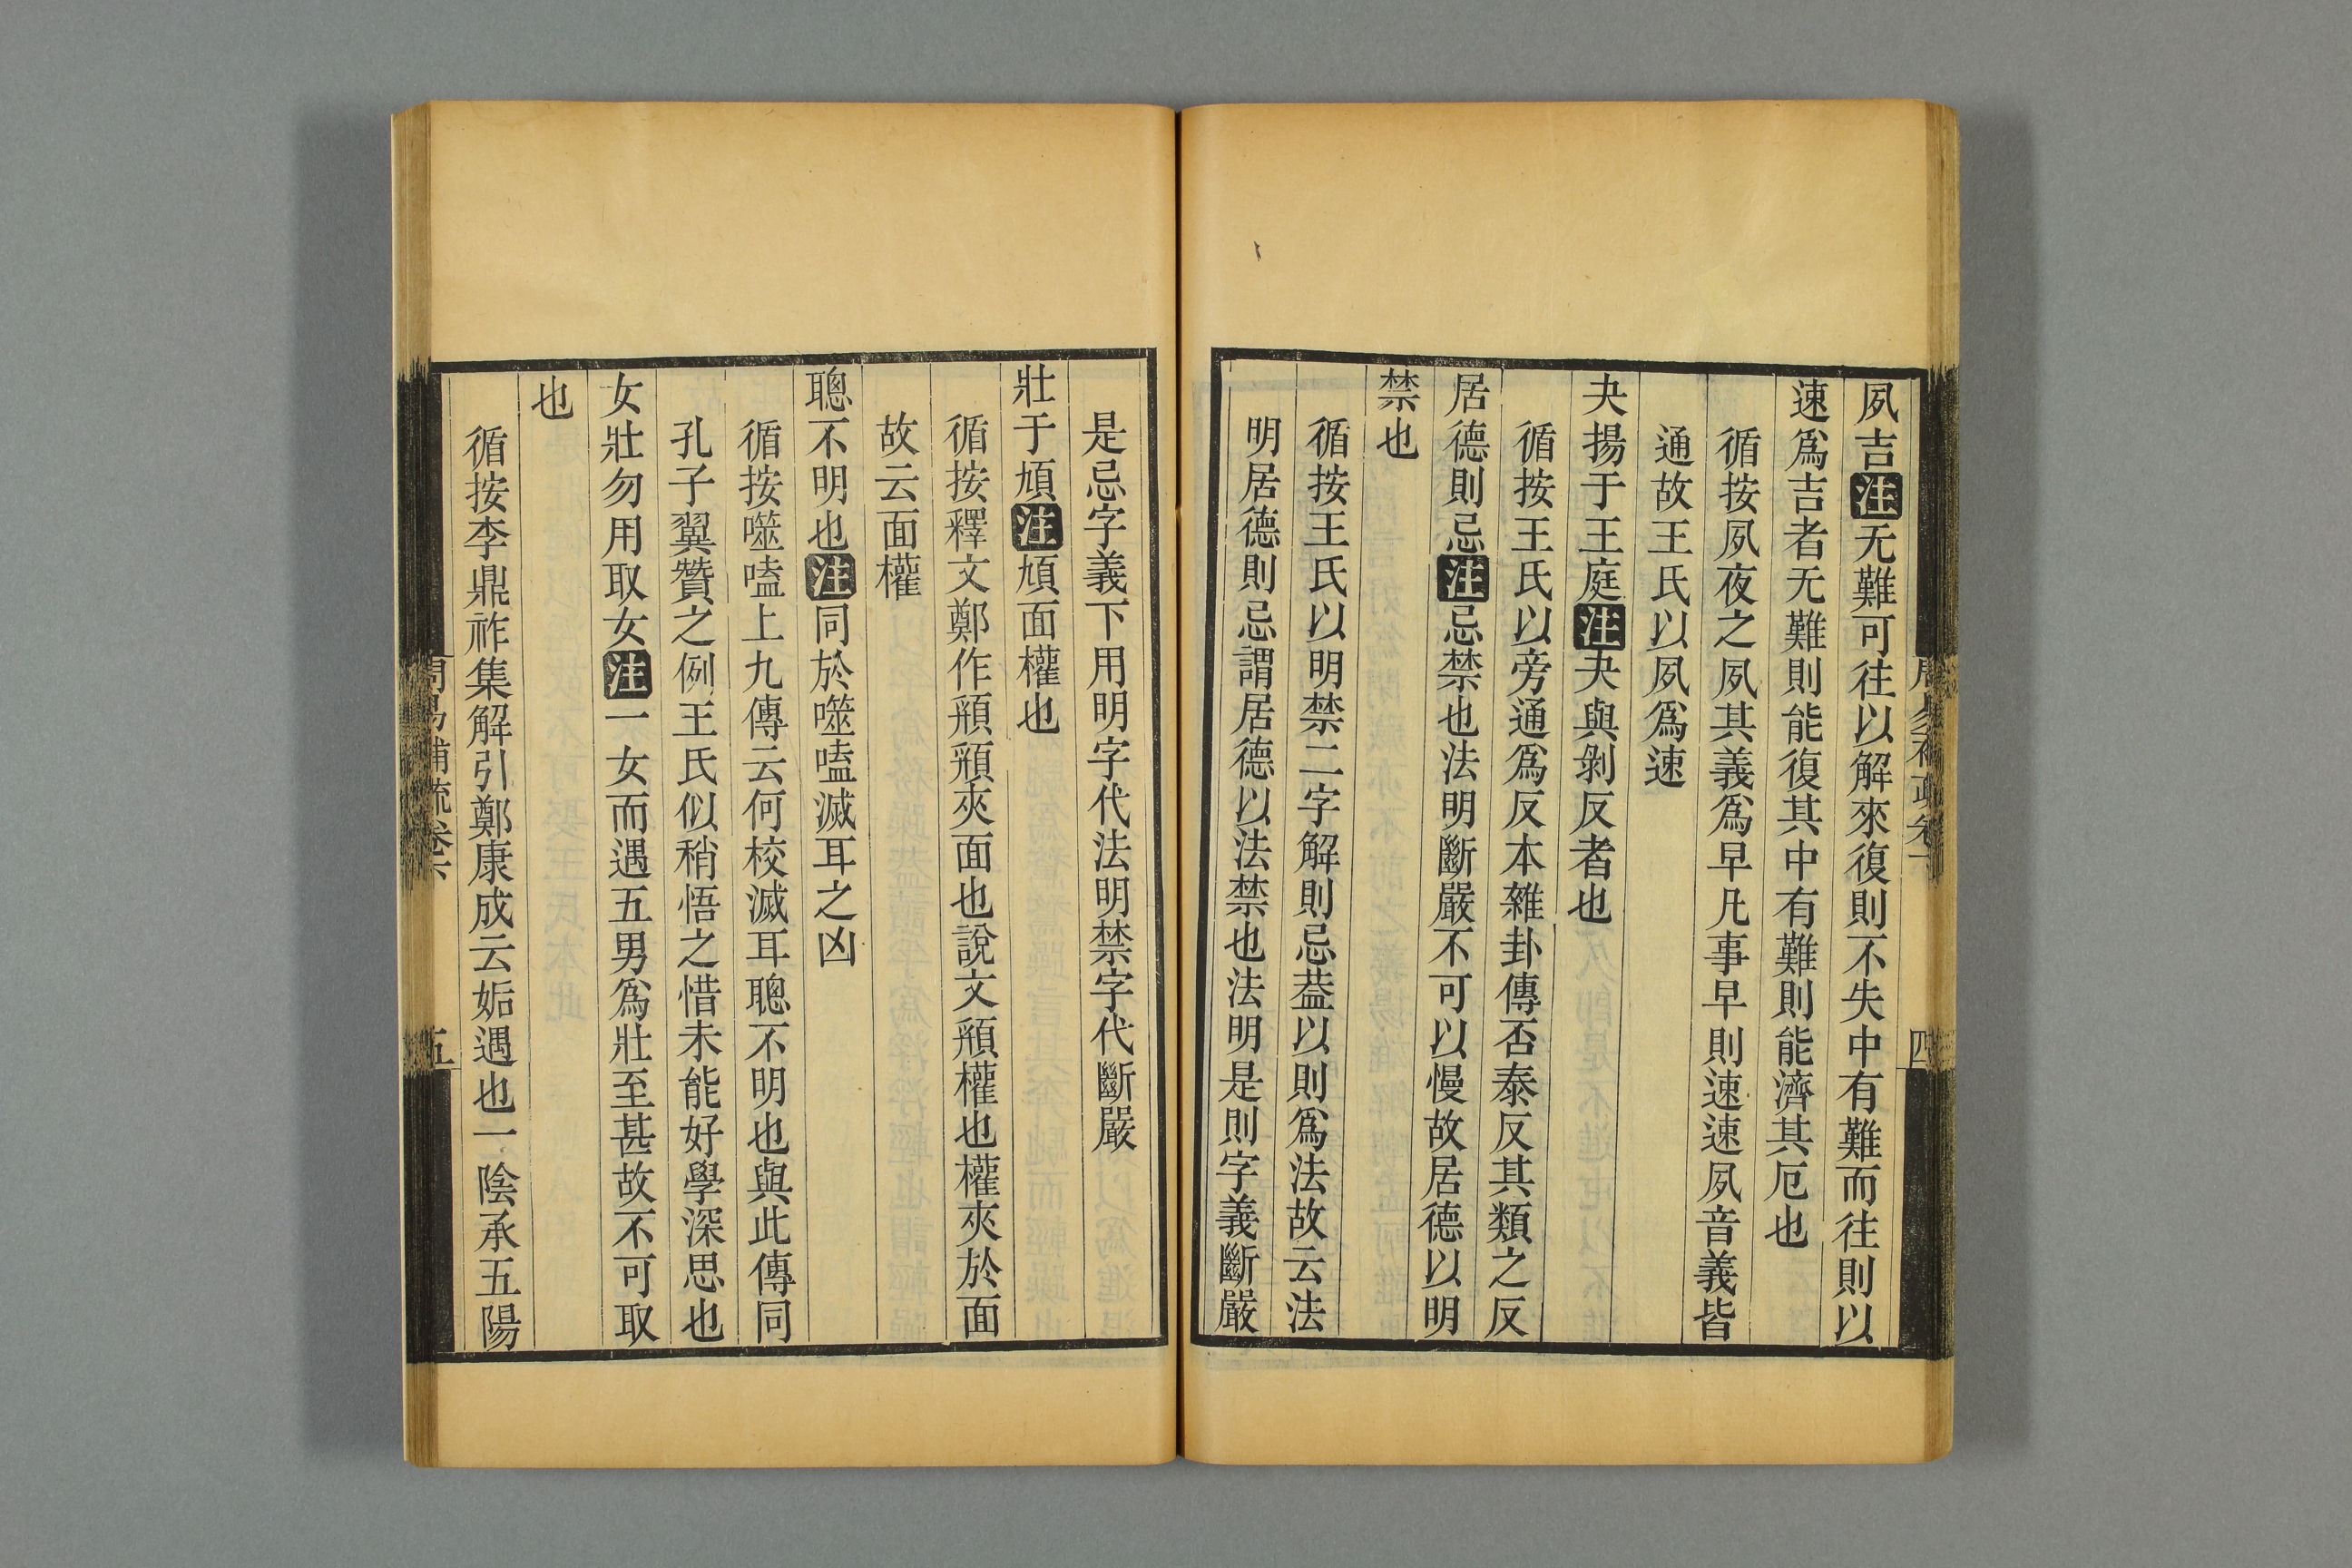 夙吉注无難可往以解來復則不失中有難而往則以
速爲吉者无難則能復其中有難則能濟其厄也
循按夙夜之夙其義爲早凡事早則速速夙音義皆
通故王氏以夙爲速
夬揚于王庭注夬與剝反者也
循按王氏以旁通爲反本雜卦傳否泰反其類之反
居德則忌注忌禁也法明斷嚴不可以慢故居德以明
禁也
循按王氏以明禁二字解則忌葢以則爲法故云法
明居德則忌謂居德以法禁也法明是則字義斷嚴
是忌字義下用明字代法明禁字代斷嚴
壯于頄注頄面權也
循按釋文鄭作頯頯夾面也說文頯權也權夾於面
故云面權
聰不明也注同於噬嗑滅耳之凶
循按噬嗑上九傳云何校滅耳聰不明也與此傳同
孔子翼贊之例王氏似稍悟之惜未能好學深思也
女壯勿用取女注一女而遇五男爲壯至甚故不可取
也
循按李鼎祚集解引鄭康成云姤遇也一陰承五陽
周易補疏卷
五